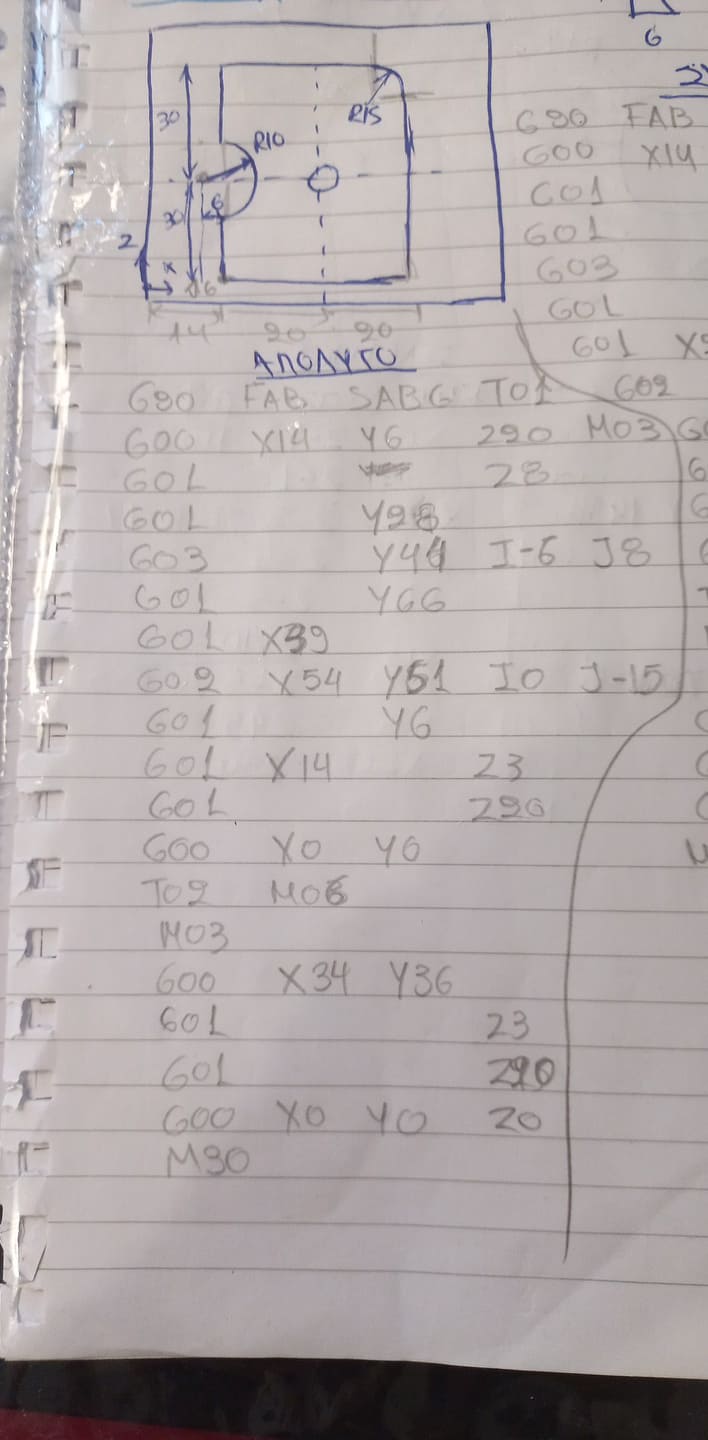 6
30
R15
R10
30
6
2
x
6
14 20 20
ΑΠΟΛΥΤΟ
G90 FAB SABG T01
G00 X14 Y6 Z20 M03
G01 Z8
G01 Y28
G03 Y44 I-6 J8
G01 Y66
G01 X39
G02 X54 Y51 I0 J-15
G01 Y6
G01 X14 Z3
G01 Z20
G00 X0 Y0
T02 M06
M03
G00 X34 Y36
G01 Z3
G01 Z20
G00 X0 Y0 Z0
M30
G90 FAB
G00 X14
G01
G01
G03
G01
G01
G02